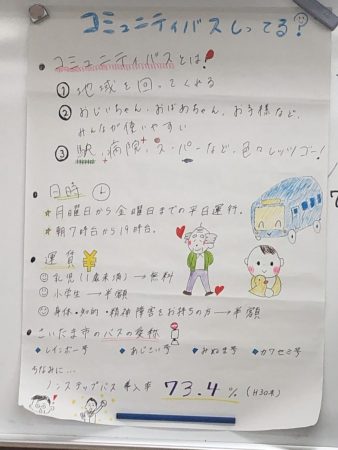 コミュニティバスしってる?
コミュニティバスとは!
① 地域を回ってくれる
② おじいちゃん、おばあちゃん、お子様など、
みんなが使いやすい
③ 駅、病院、スーパーなど、色々レッツゴー!
日時
★ 月曜日から金曜日までの平日運行。
★ 朝7時台から19時台。
運賃 ¥
乳児(1歳未満)→無料
小学生→半額
身体・知的・精神障害をお持ちの方→半額
さいたま市のバスの愛称
◆レインボー号 ◆あじさい号 ◆みぬま号 ◆カワセミ号
ちなみに...
ノンステップバス導入率 73.4% (H30年)